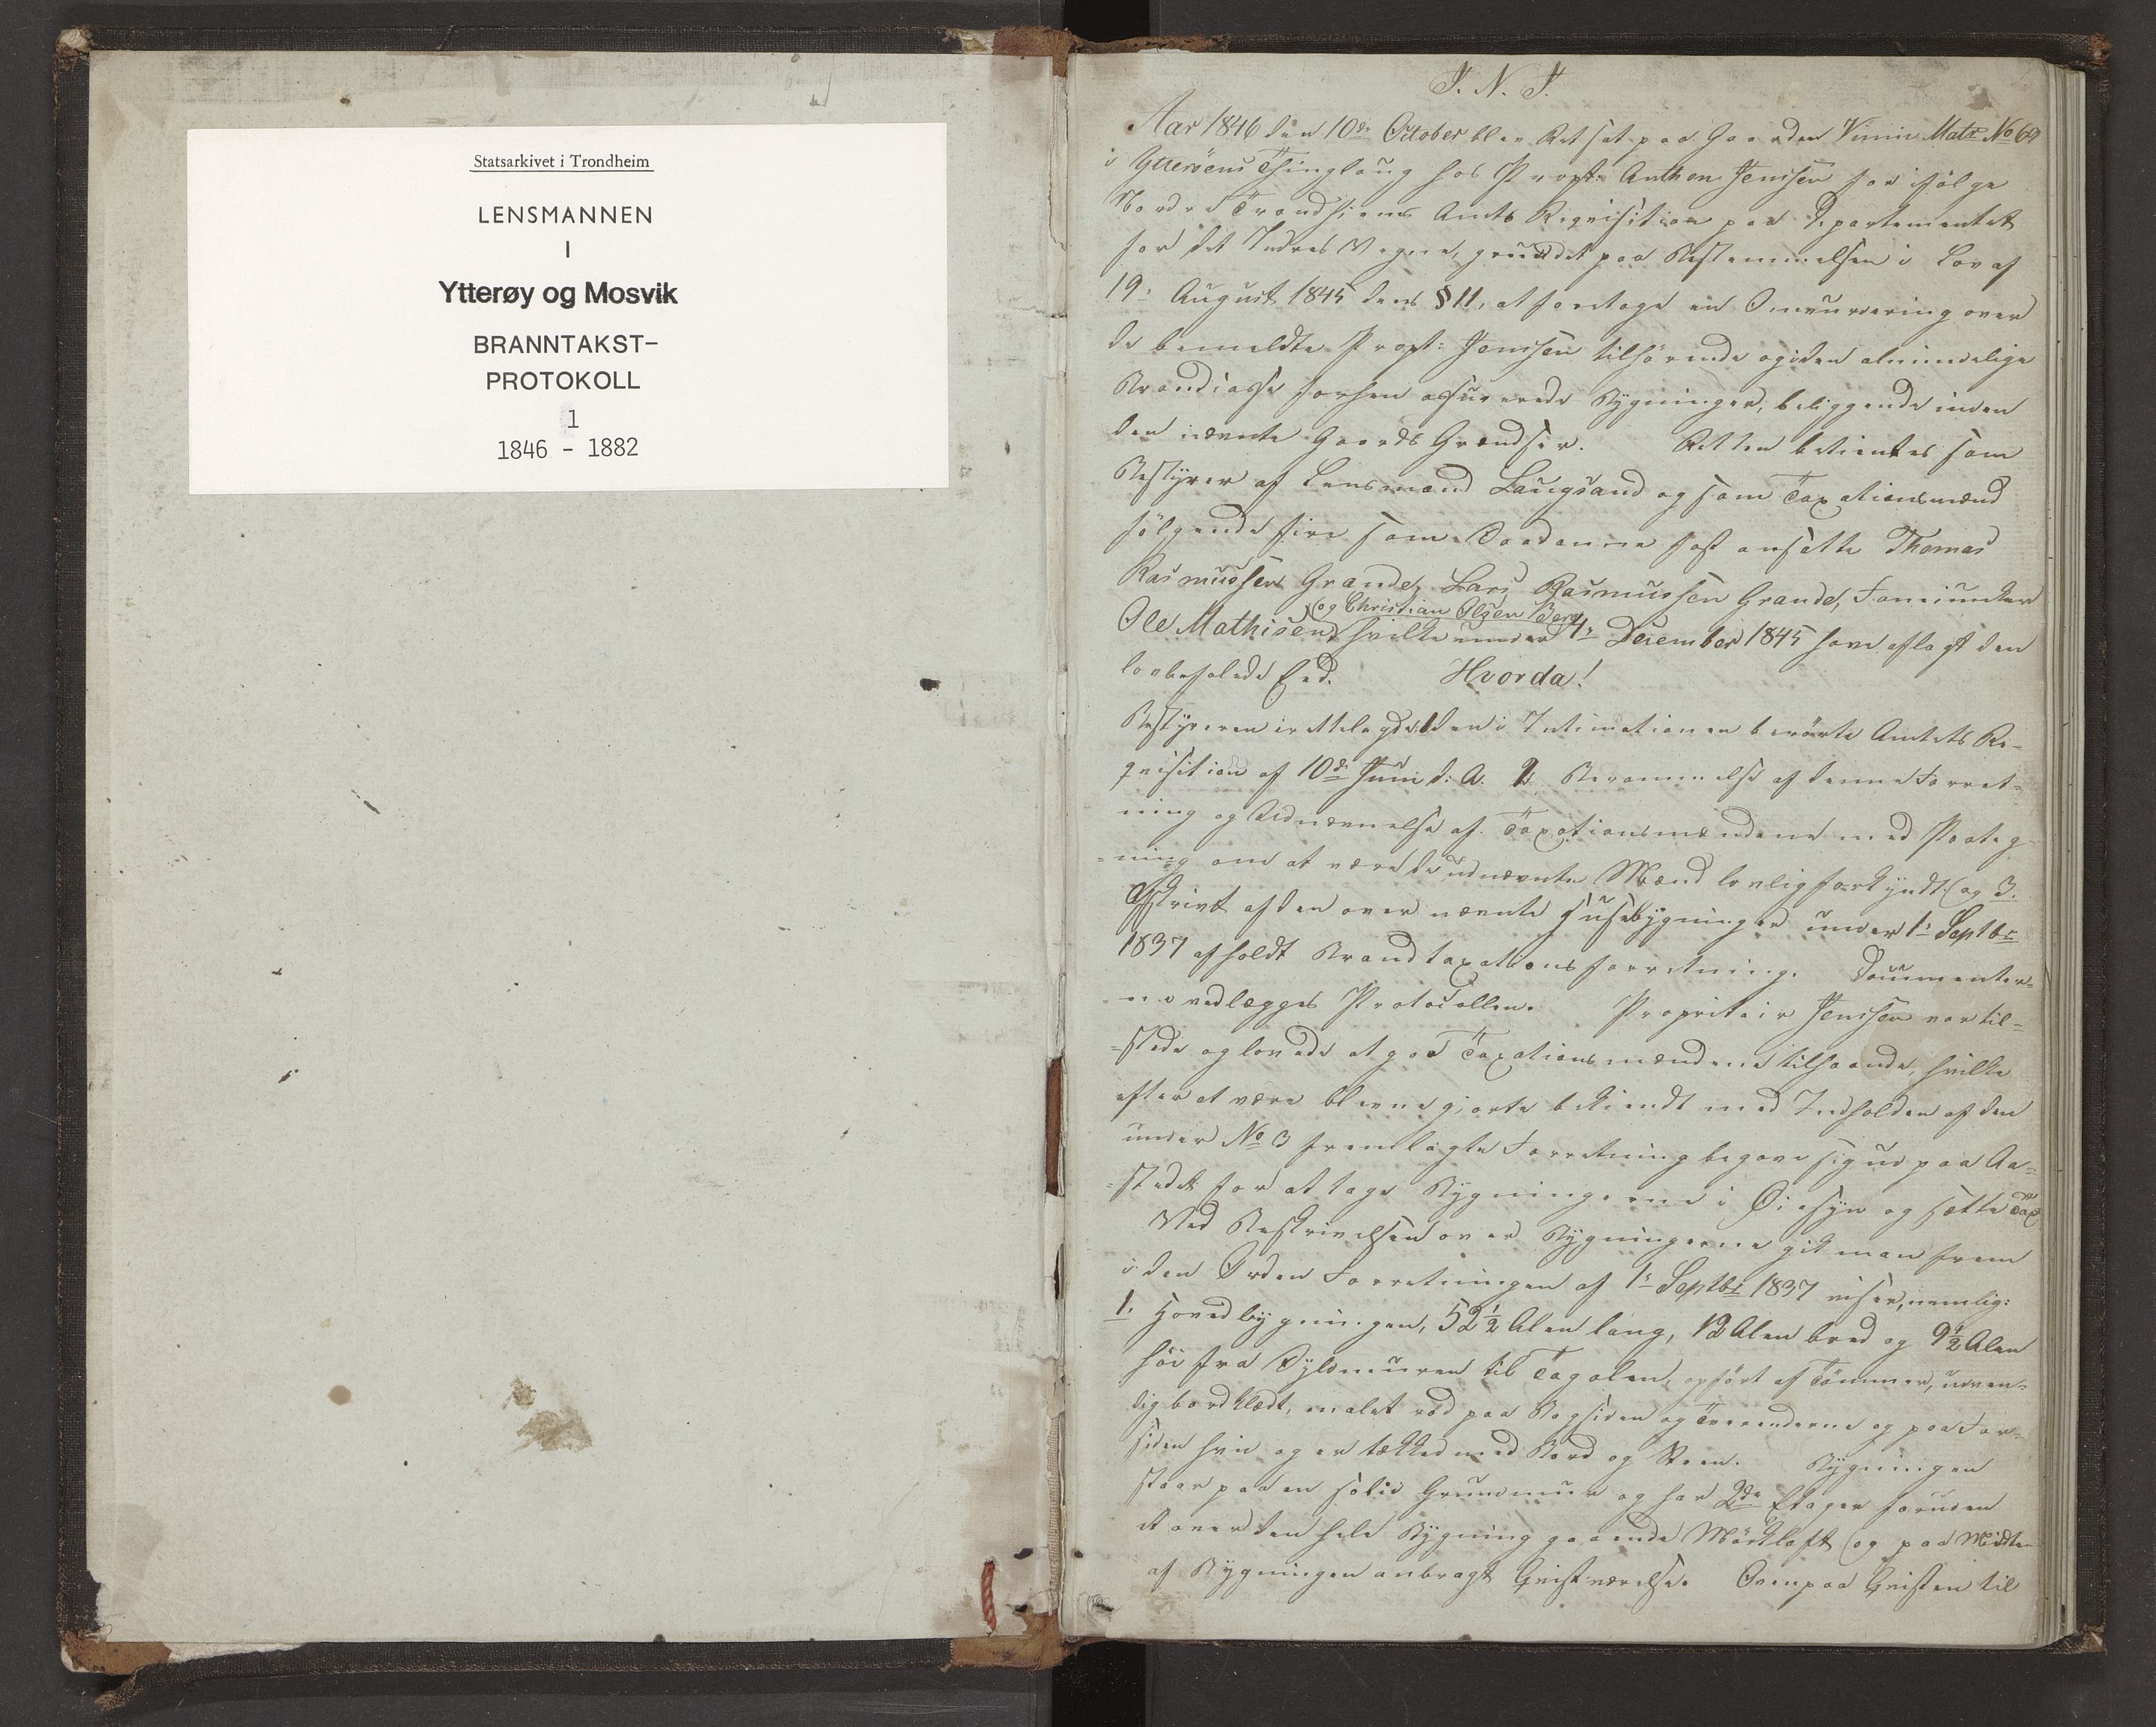 Statsarkivet i Trondheim
LENSMANNEN
I
Ytterøy og Mosvik
BRANNTAKST-
PROTOKOLL
1
1846 - 1882
T. N. T.
Aar 1846 den 10de October blev Ret sat paa Gaarden Vinin Matr No 69
i Ytteröens Thinglaug hos Propr: Anthon Jenssen for ifölge
Nordre Trondhjems Amts Reqvisition paa Departementet
for det Indres Vegne, grundet paa Bestemmelsen i Lov af
19: August 1845 dens § 11, at foretage en Omvurdering over
de bemeldte Propr: Jenssen tilhörende og i den almindelige
Brandcasse forhen assurerede Bygninger, beliggende inden
den nævnte Gaards Grændser. Retten betientes som
Bestyrer af Lensmand Laugsand og som Taxationsmænd
fölgende fire som Saadanne fast ansatte Thomas
Rasmussen Grande, Lars Rasmussen Grande,
Ole Mathisen (og Christian Olsen Berg) hvilke under 4: December 1845 have aflagt den
lovbefalede Eed. Hvorda!
Bestyreren irettelagde den i Intimationen berörte Amtets Re-
qvisition af 10de Juni d: A. 2. Berammelse af denne Forret-
ning og Udnævnelse af Taxationsmændene med Paateg-
-ning om at være de udnævnte Mænd lovlig forkyndt (og 3.
Afskrivt af den over nævnte Huusebygninger under 1: Septbr
1837 afholdt Brandtaxationsforretning. Documenter-
ne vedlægges Protocollen. Propritair Jenssen var til-
-stede og lovede at gaa Taxationsmændene tilhaande, hvilke
efter at være blevne gjorte bekiendt med Indholden af den
under No 3 fremlagte Forretning begave sig ud paa Aa-
-stedet for at tage Bygningerne i Öiesyn og sætte Tax
Ved Beskrivelsen over Bygningerne gik man frem
i den Orden Forretningen af 1: Septbr 1837 viser, nemlig:
1. Hovedbygningen, 52½ Alen lang, 12 Alen bred og 9½ Alen
höi fra Syldmuren til Tagalen, opfört af Tömmer, udven-
dig bordklædt, malet röd paa Bagsiden og Tverenderne og paa For-
siden hvid og er tækked med Bord og Steen. Bygningen
staar paa en solid Grundmuur og har 2de Etager foruden
et over den hele Bygning gaaende Mörkloft (og paa Midten
af Bygningen anbragt Qvistværelse. Ovenpaa Qvisten til